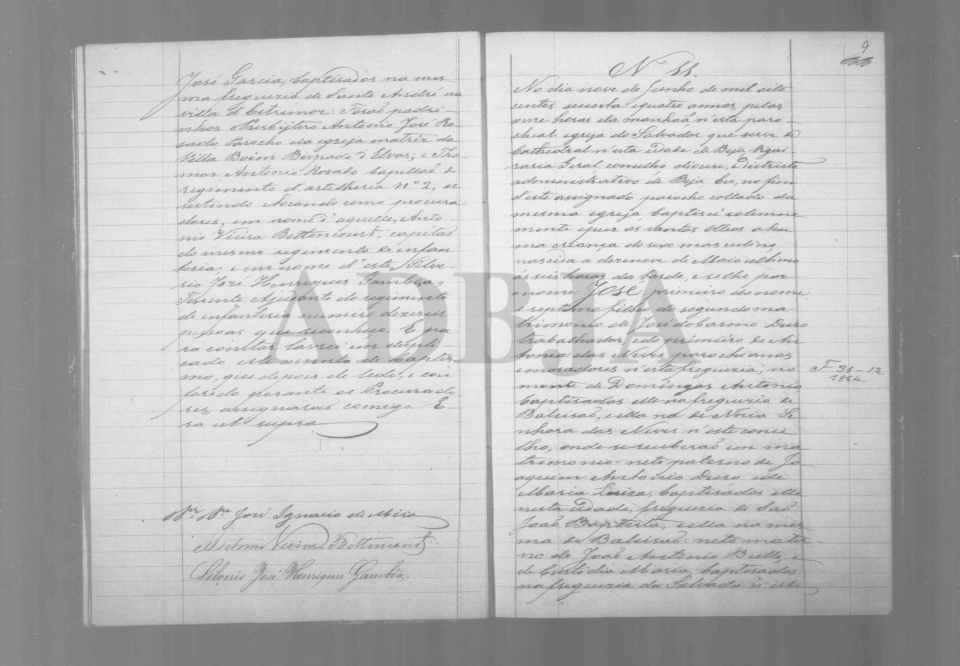 José Garcia, baptisados na mes
ma freguezia de Santo André na
villa d'Estremoz. Forão padri-
nhos o Presbytero Antonio José Ro
sado Parocho da igreja matriz da
Villa Boim Bispado d'Elvas; e Tho
maz Antonio Rosado capellaõ do
regimento d'artilheria Nº 2,
tocando como procura
dores, em nome d'aquelle, Anto-
nio Vieira Bettencourt, capitaõ
do mesmo regimento de infan
teria, e em nome d'este, Silve-
rio José Henriques Gambôa
Tenente Ajudante do regimento
de infanteria numero dezeseis
pessoas que reconheço. E pa
ra constar lavrei em dupli-
cado este assento de baptis-
mo, que depois de lido, e con-
ferido perante os Procurado
res, assignaraõ comigo. E-
ra ut supra
José Ignacio de Mira
Antonio Vieira Bettencourt
Silverio José Henriques Gambôa
9
Nº 11.
No dia nove de Junho de mil oito
centos sessenta e quatro annos, pelas
onze horas da manhaã n'esta paro-
chial igreja do Salvador que serve de
Cathedral n'esta Cidade de Beja, Vigai
raria Geral concelho diocese, e districto
administrativo de Beja Eu, no fim
d'este assignado parocho collado da
mesma igreja baptisei solemne
mente e puz os santos oleos a hu
ma criança do sexo masculino,
nascida a dezenove de Maio ultimo
ás seis horas da tarde, e se lhe poz
o nome José primeiro do nome
e septimo filho do segundo ma
trimonio de José do Carmo Duro
trabalhador, e do primeiro de An-
tonia das Neves, parochianos
e moradores n'esta freguezia, no
monte de Domingos Antonio
baptisados elle na freguezia de
Baleisaõ, e ella na de Nossa Se
nhora das Neves n'este conce
lho, onde se receberaõ em ma
trimonio: neto paterno de Jo
aquim Antonio Duro e de
Maria Luiza, baptisados elle
nesta Cidade, freguezia de Saõ
Joaõ Baptista, e ella na mes
ma de Baleisaõ: neto mater-
no de Joaõ Antonio
e de Custodia Maria, baptisados
na freguezia do Salvador n'esta
F 31-12
1864
ADBJA